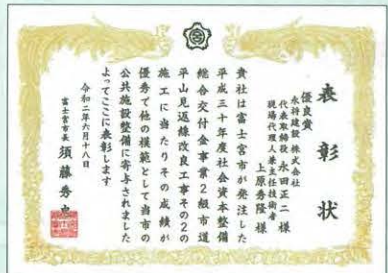 表彰状
優良賞
永井建設 株式会社
代表取締役 永田正二 様
現場代理人兼主任技術者
上原秀隆 様
貴社は富士宮市が発注した
平成三十年度社会資本整備
総合交付金事業2級市道
平山見返線改良工事その2の
施工に当たりその成績が
優秀で他の模範として当市の
公共施設整備に寄与されました
よってここに表彰します
令和二年六月十八日
富士宮市長 須藤秀